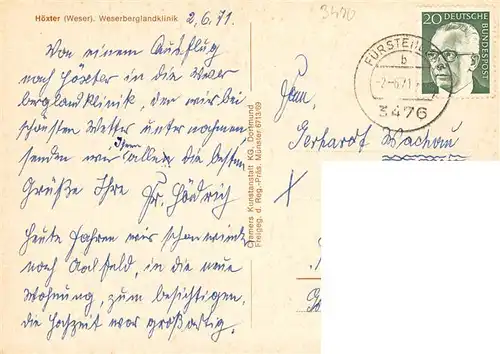 Höxter (Weser). Weserberglandklinik
2.6.71.
3470
Von einem Ausflug
nach Höxter in die Weser
berglandklinik, den wir bei
schönsten Wetter unternahmen
senden wir Ihnen allen die besten
Grüße Ihre Fr. Hödrich
Heute fahren wir schon wieder
nach Aalfeld, in die neue
Wohnung, zum besichtigen,
die Hochzeit war großartig.
Cramers Kunstanstalt KG., Dortmund
Freigeg. d. Reg.-Präs. Münster 6713/69
FÜRSTEN
b
-2.-6.71
3476
20 DEUTSCHE
BUNDESPOST
Gerhardt Wachau